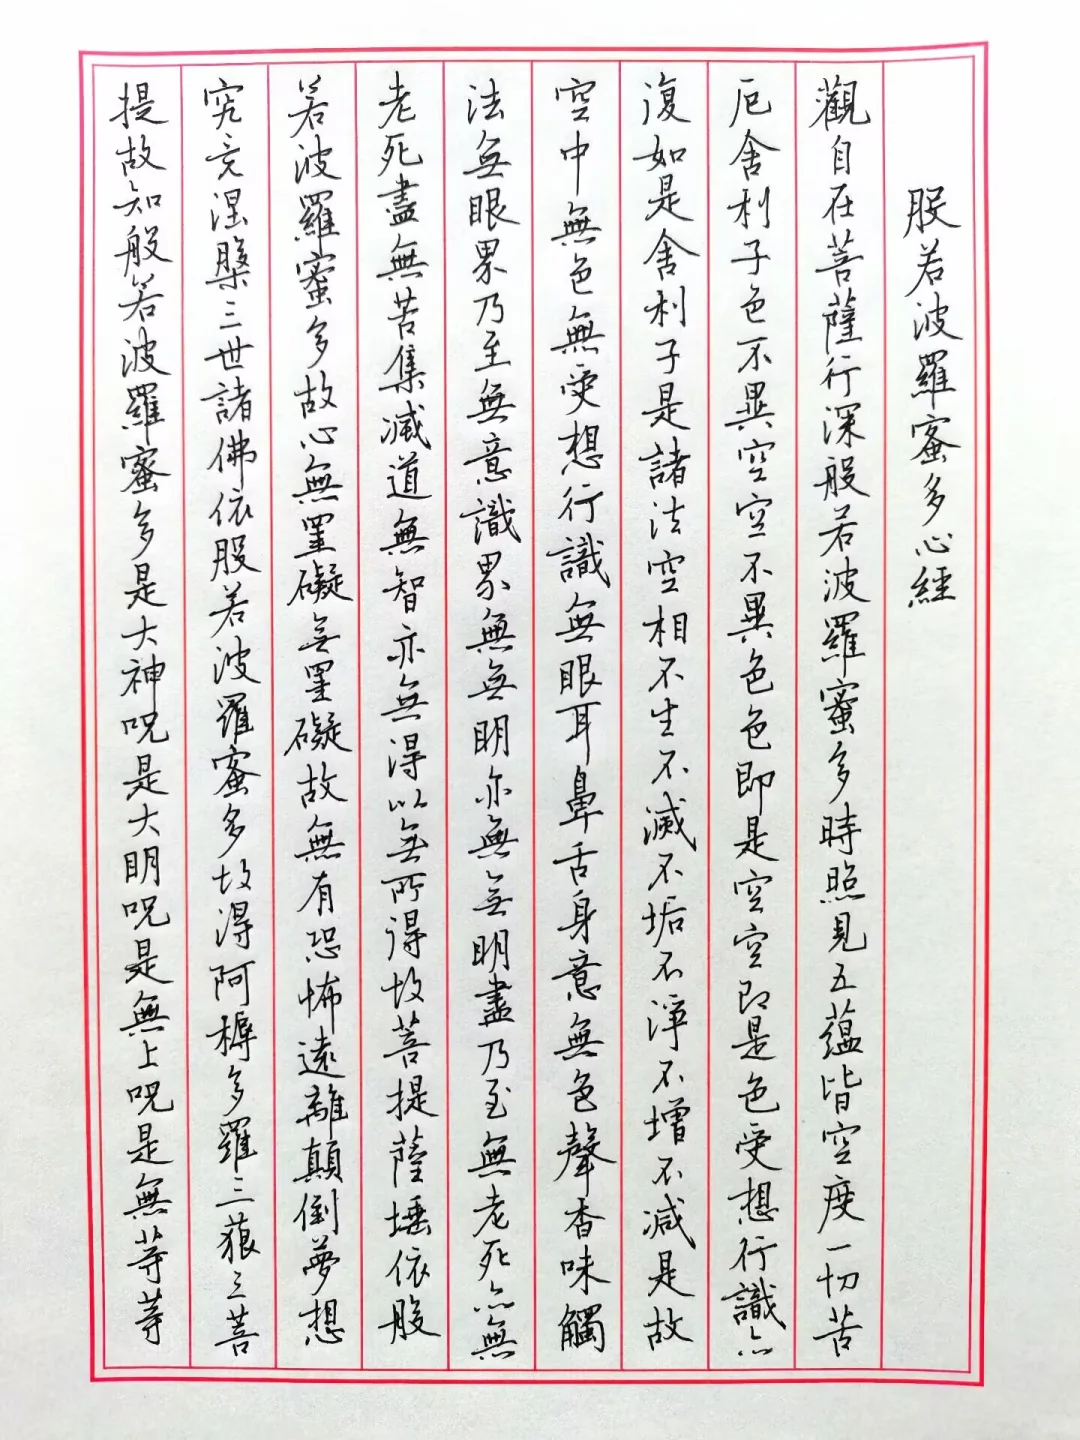 般若波羅蜜多心經
觀自在菩薩行深般若波羅蜜多時照見五蘊皆空度一切苦
厄舍利子色不異空空不異色色即是空空即是色受想行識亦
復如是舍利子是諸法空相不生不滅不垢不淨不增不減是故
空中無色無受想行識無眼耳鼻舌身意無色聲香味觸
法無眼界乃至無意識界無無明亦無無明盡乃至無老死亦無
老死盡無苦集滅道無智亦無得以無所得故菩提薩埵依般
若波羅蜜多故心無罣礙無罣礙故無有恐怖遠離顛倒夢想
究竟涅槃三世諸佛依般若波羅蜜多故得阿耨多羅三藐三菩
提故知般若波羅蜜多是大神咒是大明咒是無上咒是無等等